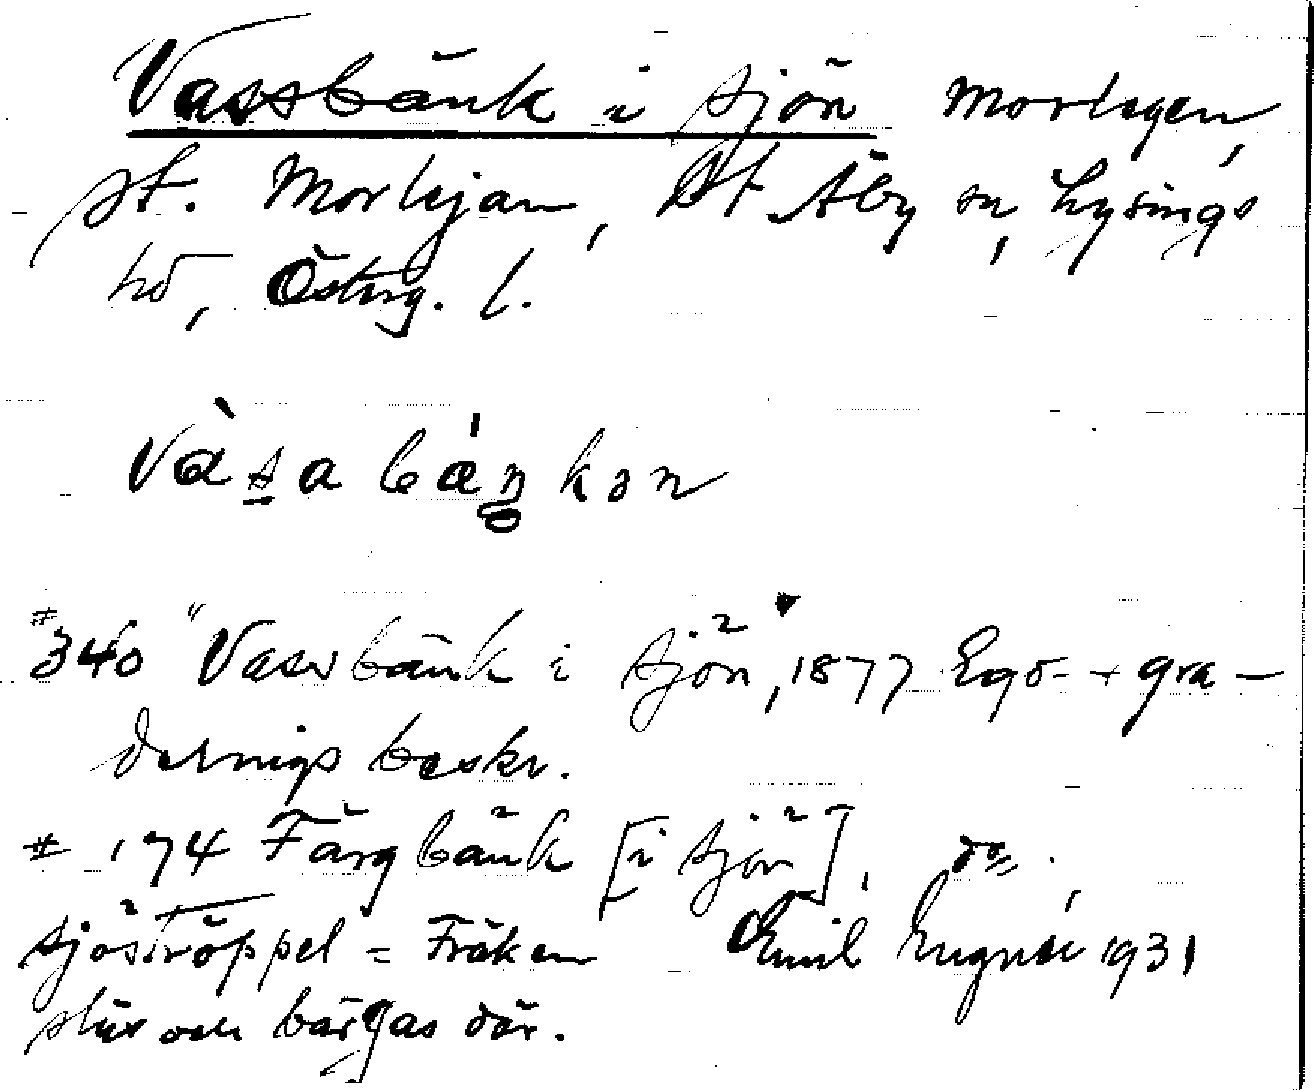 Vassbänk i sjön Morlejen,
st. Morlejan, St Åby sn, Lysings
hd, Österg. l.
Vàsabáŋkən
#340 "Vassbänk i sjön", 1877 Ego- + gra-
derings beskr.
# 174 Färgbänk [i sjön], do.
sjöströppel = Fräken Emil Engnér 1931
slås och bärgas där.